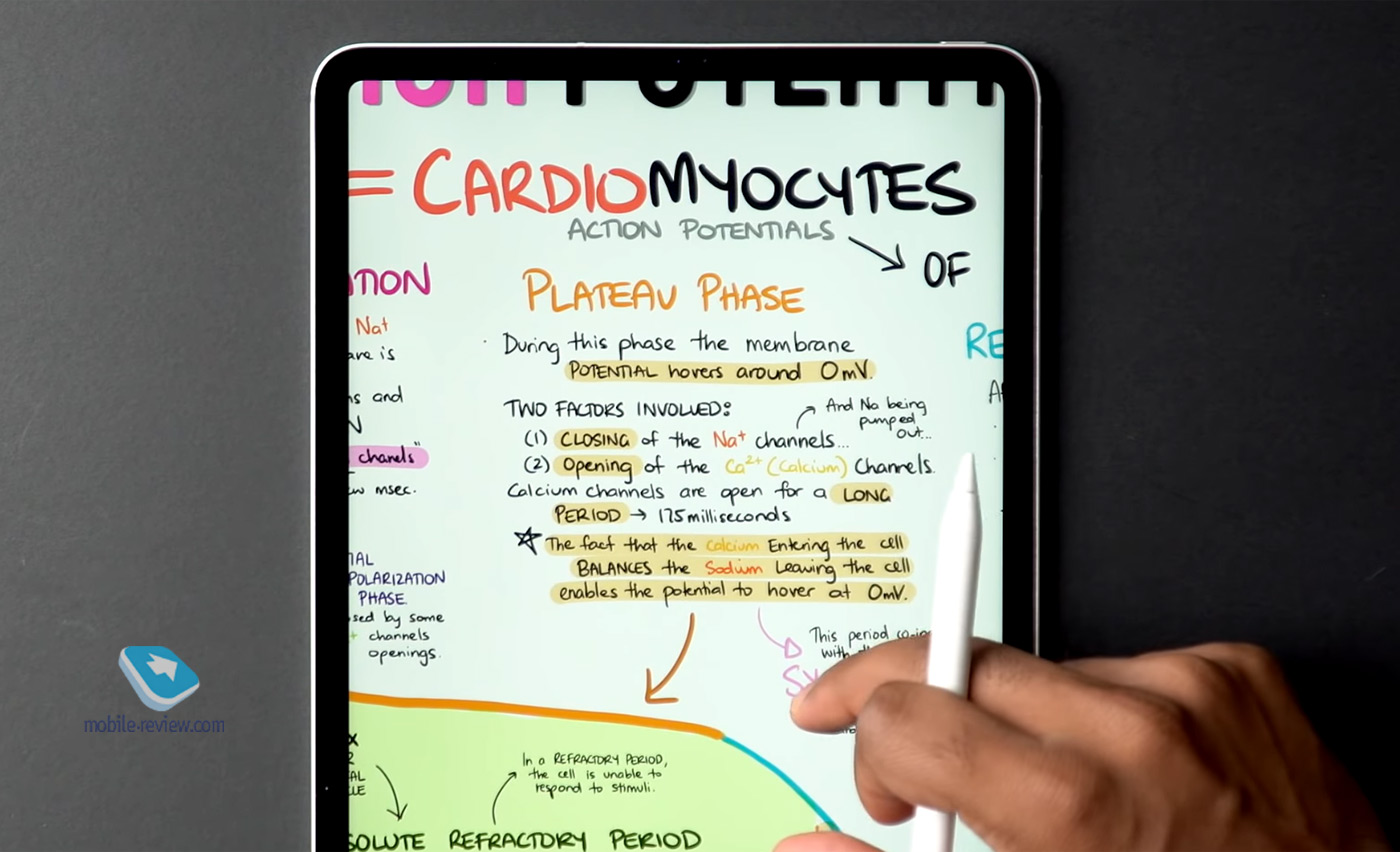 = CARDIOMYOCYTES
ACTION POTENTIALS
OF
PLATEAU PHASE
During this phase the membrane
POTENTIAL hovers around 0mV.
TWO FACTORS INVOLVED:
And Na being
pumped
out...
(1) CLOSING of the Na+ channels...
(2) Opening of the Ca2+ (Calcium) Channels.
Calcium channels are open for a LONG
PERIOD → 175 milliseconds
The fact that the calcium Entering the cell
BALANCES the Sodium Leaving the cell
enables the potential to hover at 0mV.
This period
with
Na+
are is
and
chanels"
msec.
POLARIZATION
PHASE.
sed by some
+ channels
openings.
RE
In a REFRACTORY PERIOD,
the cell is unable to
respond to stimuli.
SOLUTE REFRACTORY PERIOD
mobile-review.com